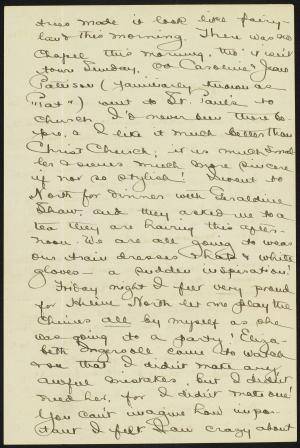 trees made it look like fairy-
land this morning. There was no
Chapel this morning, tho' it isn't
town Sunday, so Caroline, Jean
Pattison (familiarly known as
"Pat") went to St. Paul's to
church. I'd never been there be-
fore, & I like it much better than
Christ Church; it is much smal-
ler & seems much more sincere
if not so stylish! I went to
North for dinner with Geraldine
Shaw, and they asked me to a
tea they are having this after-
noon. We are all going to wear
our train dresses & hats & white
gloves — a sudden inspiration!
Friday night I felt very proud
for Helene North let me play the
chimes all by myself as she
was going to a party! Eliza-
beth Ingersoll came to watch
see that I didn't make any
awful mistakes, but I didn't
need her, for I didn't make one!
You can't imagine how impor-
tant I felt. I am crazy about